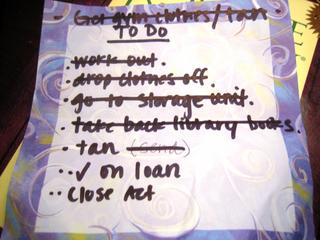 - Get gym clothes / tan
TO DO
• work out.
• drop clothes off.
• go to storage unit.
• take back library books.
• tan (Send)
•• ✓ on loan
•• Close Act
E